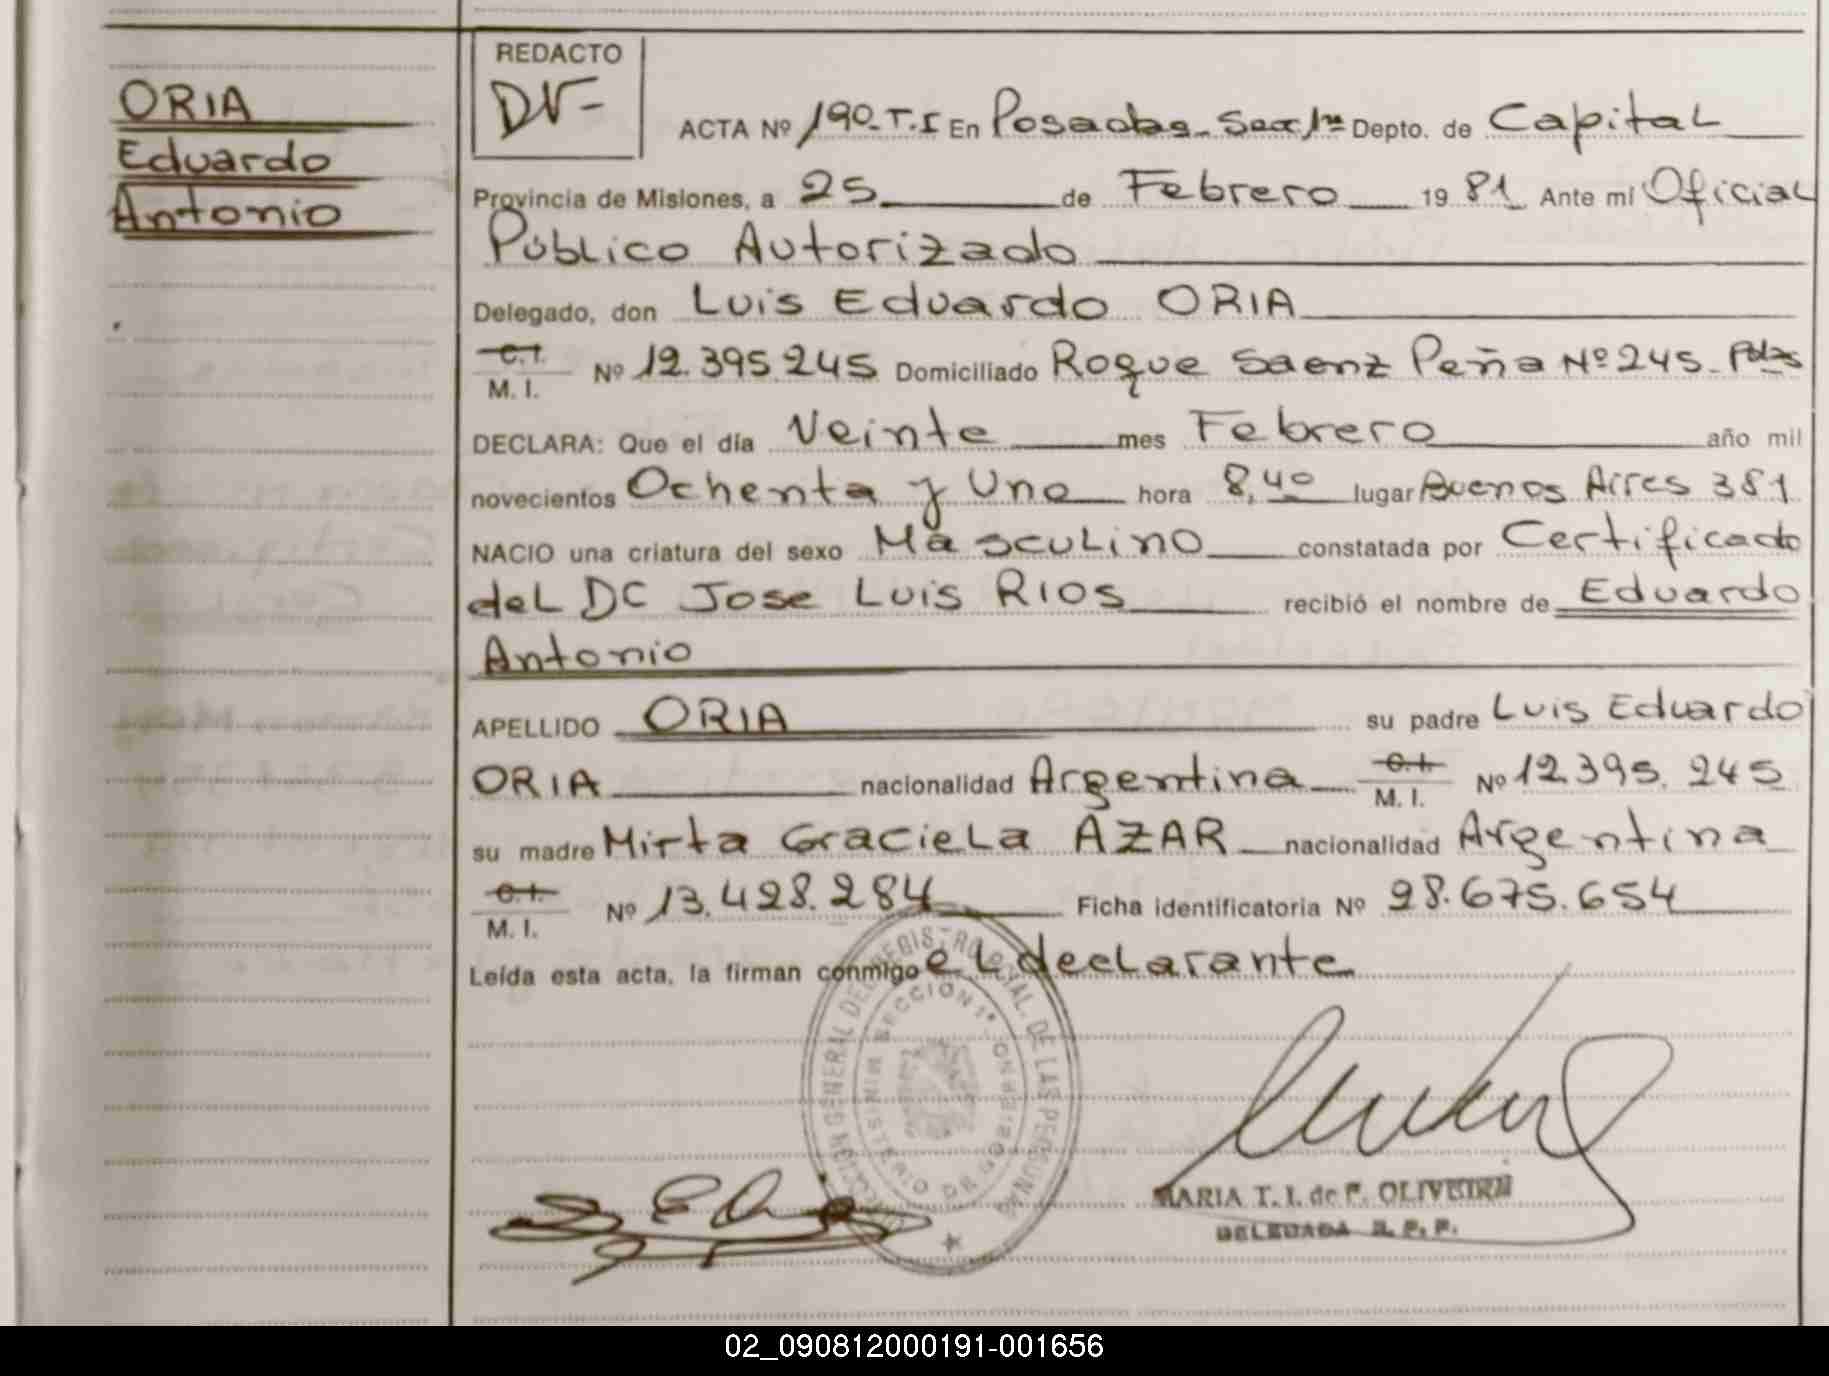 ORIA
Eduardo
Antonio
REDACTO
DV-
ACTA Nº 190.T.I En Posadas Secc 1ra Depto. de Capital
Provincia de Misiones, a 25 de Febrero 19 81 Ante mi Oficial
Público Autorizado
Delegado, don Luis Eduardo ORIA
C.I.
M. I. Nº 12.395.245 Domiciliado Roque Saenz Peña Nº 245. Pdas
DECLARA: Que el día Veinte mes Febrero año mil
novecientos Ochenta y Uno hora 8,40 lugar Buenos Aires 381
NACIO una criatura del sexo Masculino constatada por Certificado
del DC Jose Luis RIOS recibió el nombre de Eduardo
Antonio
APELLIDO ORIA su padre Luis Eduardo
ORIA nacionalidad Argentina C.I. M. I. Nº 12.395.245
su madre Mirta Graciela AZAR nacionalidad Argentina
C.I.
M. I. Nº 13.428.284 Ficha identificatoria Nº 28.675.654
Leída esta acta, la firman conmigo el declarante
DIRECCION GENERAL DEL REGISTRO PCIAL. DE LAS PERSONAS
SECCION 1ª
MINISTERIO DE GOBIERNO
MARIA T. I. de F. OLIVEIRA
DELEGADA R. P. P.
02_090812000191-001656